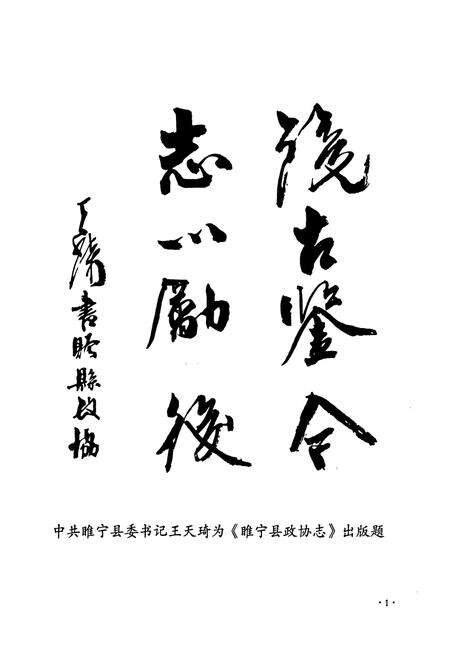 古鉴今
志以勵後
書縣政協
中共睢宁县委书记王天琦为《睢宁县政协志》出版题
·1·